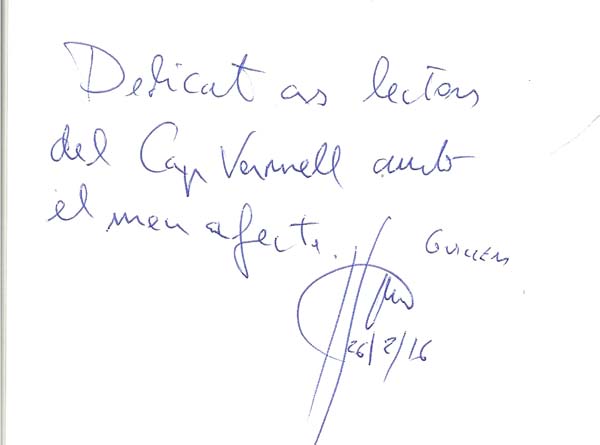 Dedicat as lectors
del Cap Vermell amb
el meu afecte.
Guillem
26/2/16